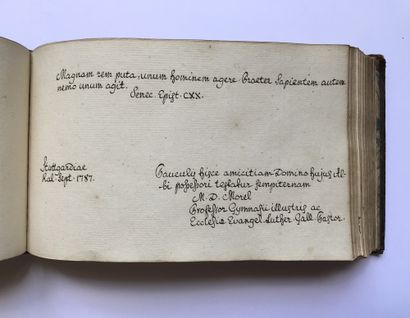 Magnam rem puta, unum hominem agere Praeter Sapientem autem
nemo unum agit.
Senec. Epist. CXX.
Stuttgardiae
Kal. Sept. 1787.
Pauculis hisce amicitiam Domino hujus Al-
bi possessori testatur sempiternam
M. D. Morel
Professor Gymnasii illustris ac
Ecclesiæ Evangel. Luther. Gall. Pastor.